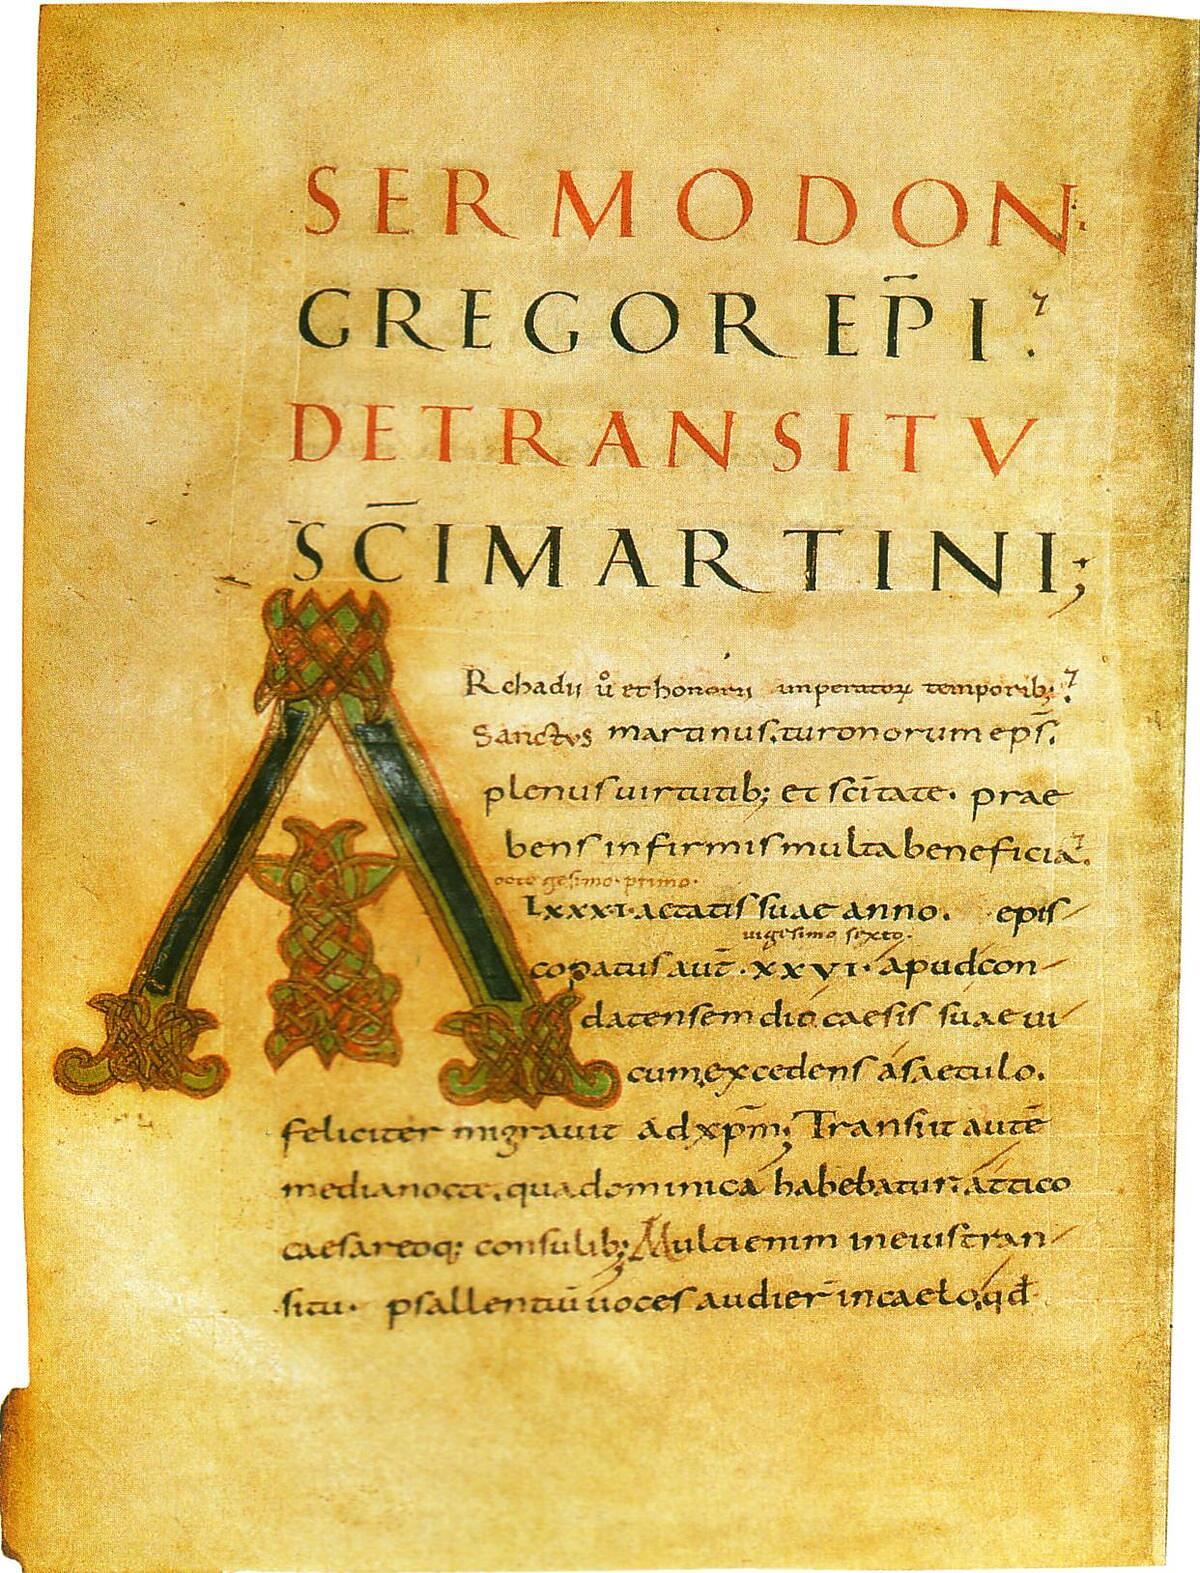 SERMO DON
GREGOR EP̄I
DE TRANSITV
SC̄I MARTINI;
ARchadii ů et honorii imperatorꝝ temporib;
Sanctus martinus, turonorum ep̄s.
plenus uirtutib; et sc̄itate. prae
bens infirmis multa beneficia.
octogesimo primo.
LXXXI. aetatis suae anno. epis
uigesimo sexto.
copatus aut̄. XXVI. apud con
datensem diocaesis suae ui
cum, excedens a saeculo.
feliciter migrauit ad xp̄m; Transiit autē
media nocte, qua dominica habebatur, attico
caesareoq; consulib; Multi enim in eius tran
situ. psallentiū uoces audier̄ in caelo, qđ